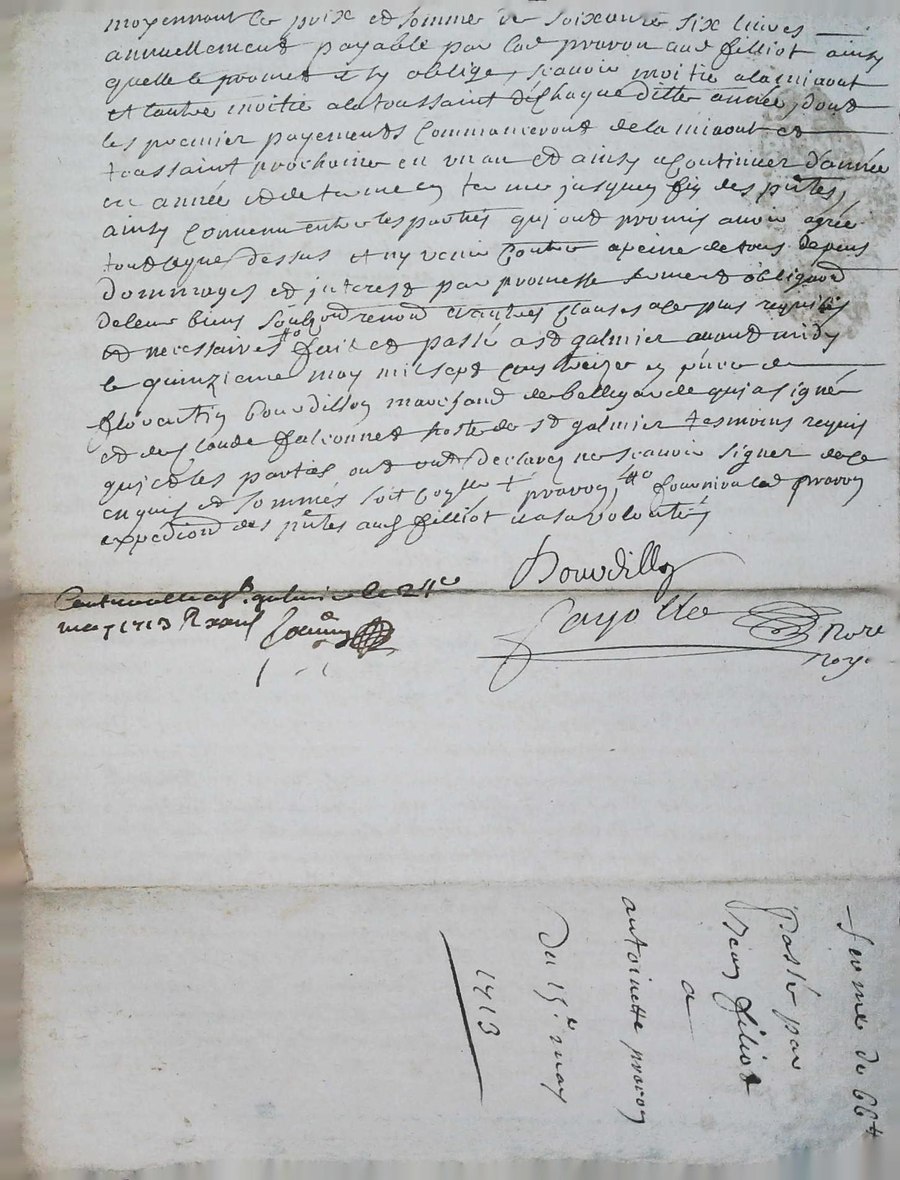 moyennant le prix et somme de soixante six livres
annuellement payable par lad provon aud filliot ainsy
quelle le promet et sy oblige, scavoir moitié a la miaout
et lautre moitie a la toussaint de chaque ditte année, dont
les premier payements commanceront de la miaout et
toussaint prochaine en un an et ainsy a continuer d'année
en année et de terme en terme jusques fin des pntes,
ainsy convenu entre les parties qui ont promis avoir agréé
tout ce que dessus et ny venir contre a peine de tous depens
dommages et interest par promesse serment obligaon
de leur biens renond et autres clauses a ce plus requises
et necessaires fait et passé a st galmier avant midy
le quinzieme may mil sept cens treize en pnce de
florentin bourdillon marchand de bellegarde qui a signé
et de claude falconnet hoste de st galmier tesmoins requis
qui et les parties ont declarez ne scavoir signer de ce
enquis et sommés soit + provon, fournira lad provon
expedion des pntes aud filliot a sa volonté
Bourdillon
Fayolle Nore
Roy.
Controllé a st galmier le 24e
may 1713 R
ferme de 66 ₶
passé par
Jean filliot
a
antoinette provon
Du 15e may
1713